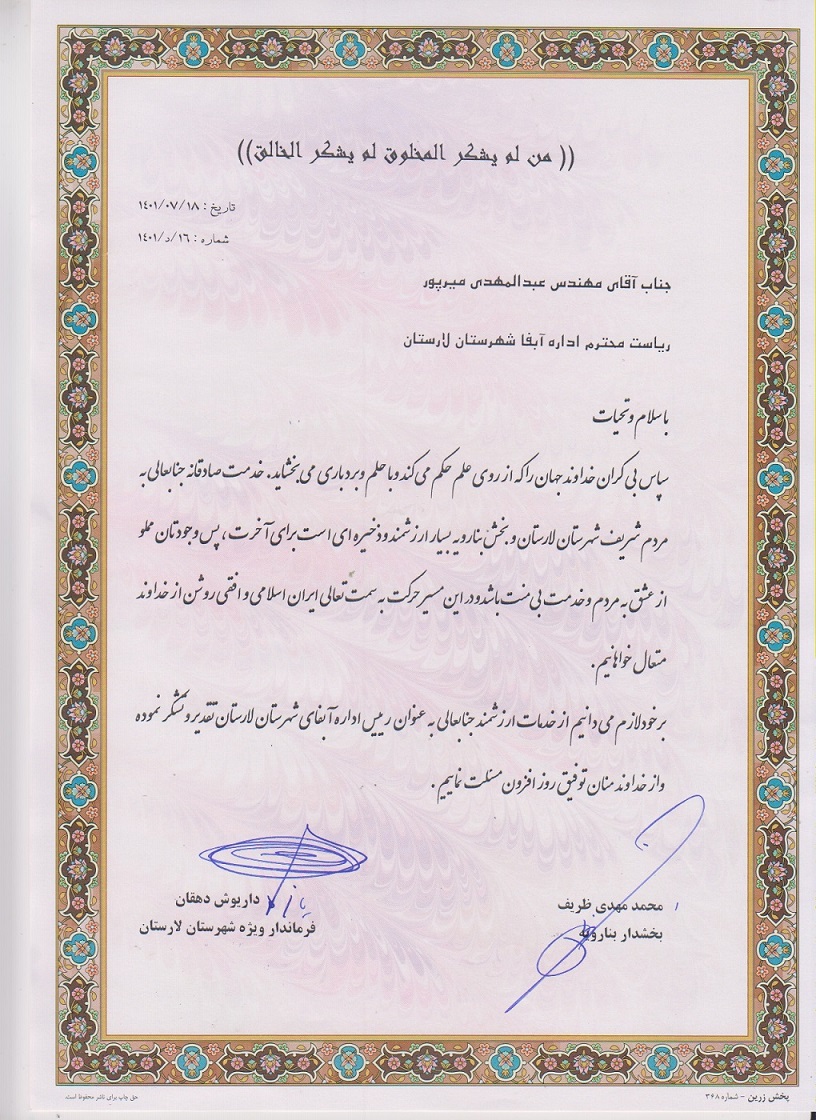 (( من لم یشکر المخلوق لم یشکر الخالق))
تاریخ : ۱۴۰۱/۰۷/۱۸
شماره : ۱۶/د/۱۴۰۱
جناب آقای مهندس عبدالمهدی میرپور
ریاست محترم اداره آبفا شهرستان لارستان
با سلام و تحیات
سپاس بی کران خداوند جهان را که از روی علم حکم می کند و با حلم و بردباری می بخشاید. خدمت صادقانه جنابعالی به
مردم شریف شهرستان لارستان و بخش بنارویه بسیار ارزشمند و ذخیره ای است برای آخرت ، پس وجودتان مملو
از عشق به مردم و خدمت بی منت باشد و در این مسیر حرکت به سمت تعالی ایران اسلامی و افقی روشن از خداوند
متعال خواهانیم.
بر خود لازم می دانیم از خدمات ارزشمند جنابعالی به عنوان رییس اداره آبفای شهرستان لارستان تقدیر و تشکر نموده
و از خداوند منان توفیق روز افزون مسئلت نماییم .
محمد مهدی ظریف
بخشدار بنارویه
داریوش دهقان
فرماندار ویژه شهرستان لارستان
پخش زرین - شماره ۳۶۸
حق چاپ برای ناشر محفوظ است